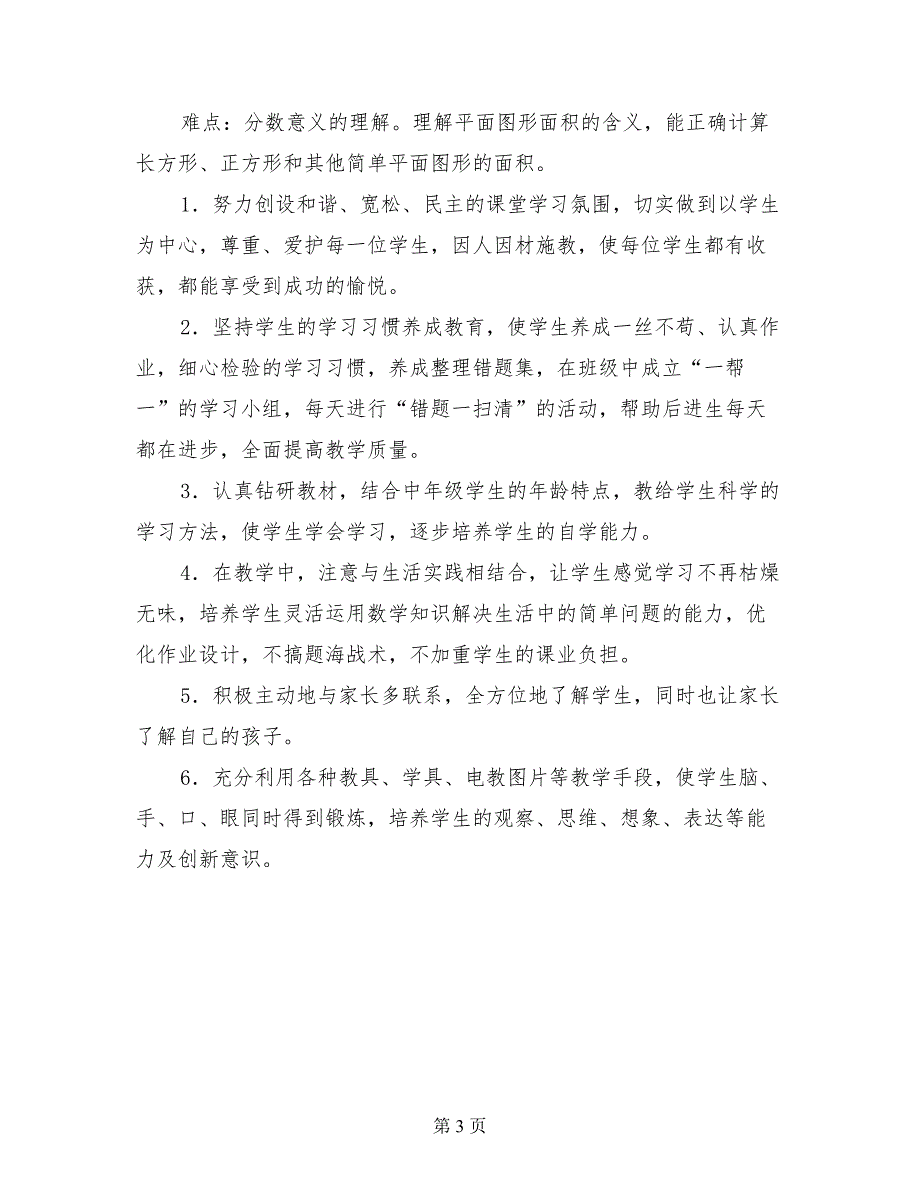 难点：分数意义的理解。理解平面图形面积的含义，能正确计算
长方形、正方形和其他简单平面图形的面积。
1．努力创设和谐、宽松、民主的课堂学习氛围，切实做到以学生
为中心，尊重、爱护每一位学生，因人因材施教，使每位学生都有收
获，都能享受到成功的愉悦。
2．坚持学生的学习习惯养成教育，使学生养成一丝不苟、认真作
业，细心检验的学习习惯，养成整理错题集，在班级中成立“一帮
一”的学习小组，每天进行“错题一扫清”的活动，帮助后进生每天
都在进步，全面提高教学质量。
3．认真钻研教材，结合中年级学生的年龄特点，教给学生科学的
学习方法，使学生学会学习，逐步培养学生的自学能力。
4．在教学中，注意与生活实践相结合，让学生感觉学习不再枯燥
无味，培养学生灵活运用数学知识解决生活中的简单问题的能力，优
化作业设计，不搞题海战术，不加重学生的课业负担。
5．积极主动地与家长多联系，全方位地了解学生，同时也让家长
了解自己的孩子。
6．充分利用各种教具、学具、电教图片等教学手段，使学生脑、
手、口、眼同时得到锻炼，培养学生的观察、思维、想象、表达等能
力及创新意识。
第 3 页